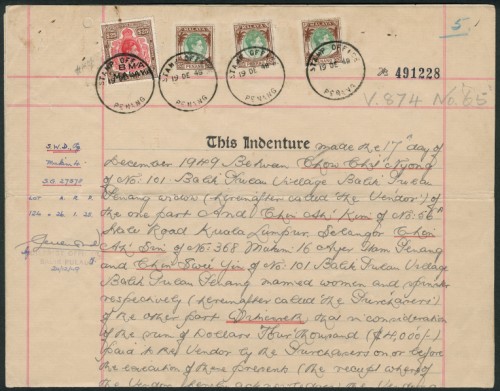 5
B M A
MALAYA
MALAYA
MALAYA
MALAYA
PENANG
PENANG
PENANG
STAMP OFFICE
19 DE 49
PENANG
STAMP OFFICE
19 DE 49
PENANG
STAMP OFFICE
19 DE 49
PENANG
STAMP OFFICE
19 DE 49
PENANG
No 491228
V. 874 No. 65
This Indenture made the 17th day of
December 1949 Between Chow Chi Kyong
of No. 101 Balik Pulau Village Balik Pulau
Penang widow (hereinafter called the Vendor) of
the one part And Choi Ah Kim of No. 56A
Road Kuala Lumpur, Selangor Choi
Ah Soi of No. 368 Mukim 16 Ayer Itam Penang
and Choi Swee Yin of No. 101 Balik Pulau Village
Balik Pulau Penang named women and spinster
respectively (hereinafter called the Purchasers)
of the other part Witnesseth that in consideration
of the sum of Dollars Four thousand ($4,000/-)
paid to the Vendor by the Purchasers on or before
the execution of these presents (the receipt whereof
the Vendor hereby acknowledges) the Vendor
S.W.D. Pg
Mukim 4.
LOT A. R. P.